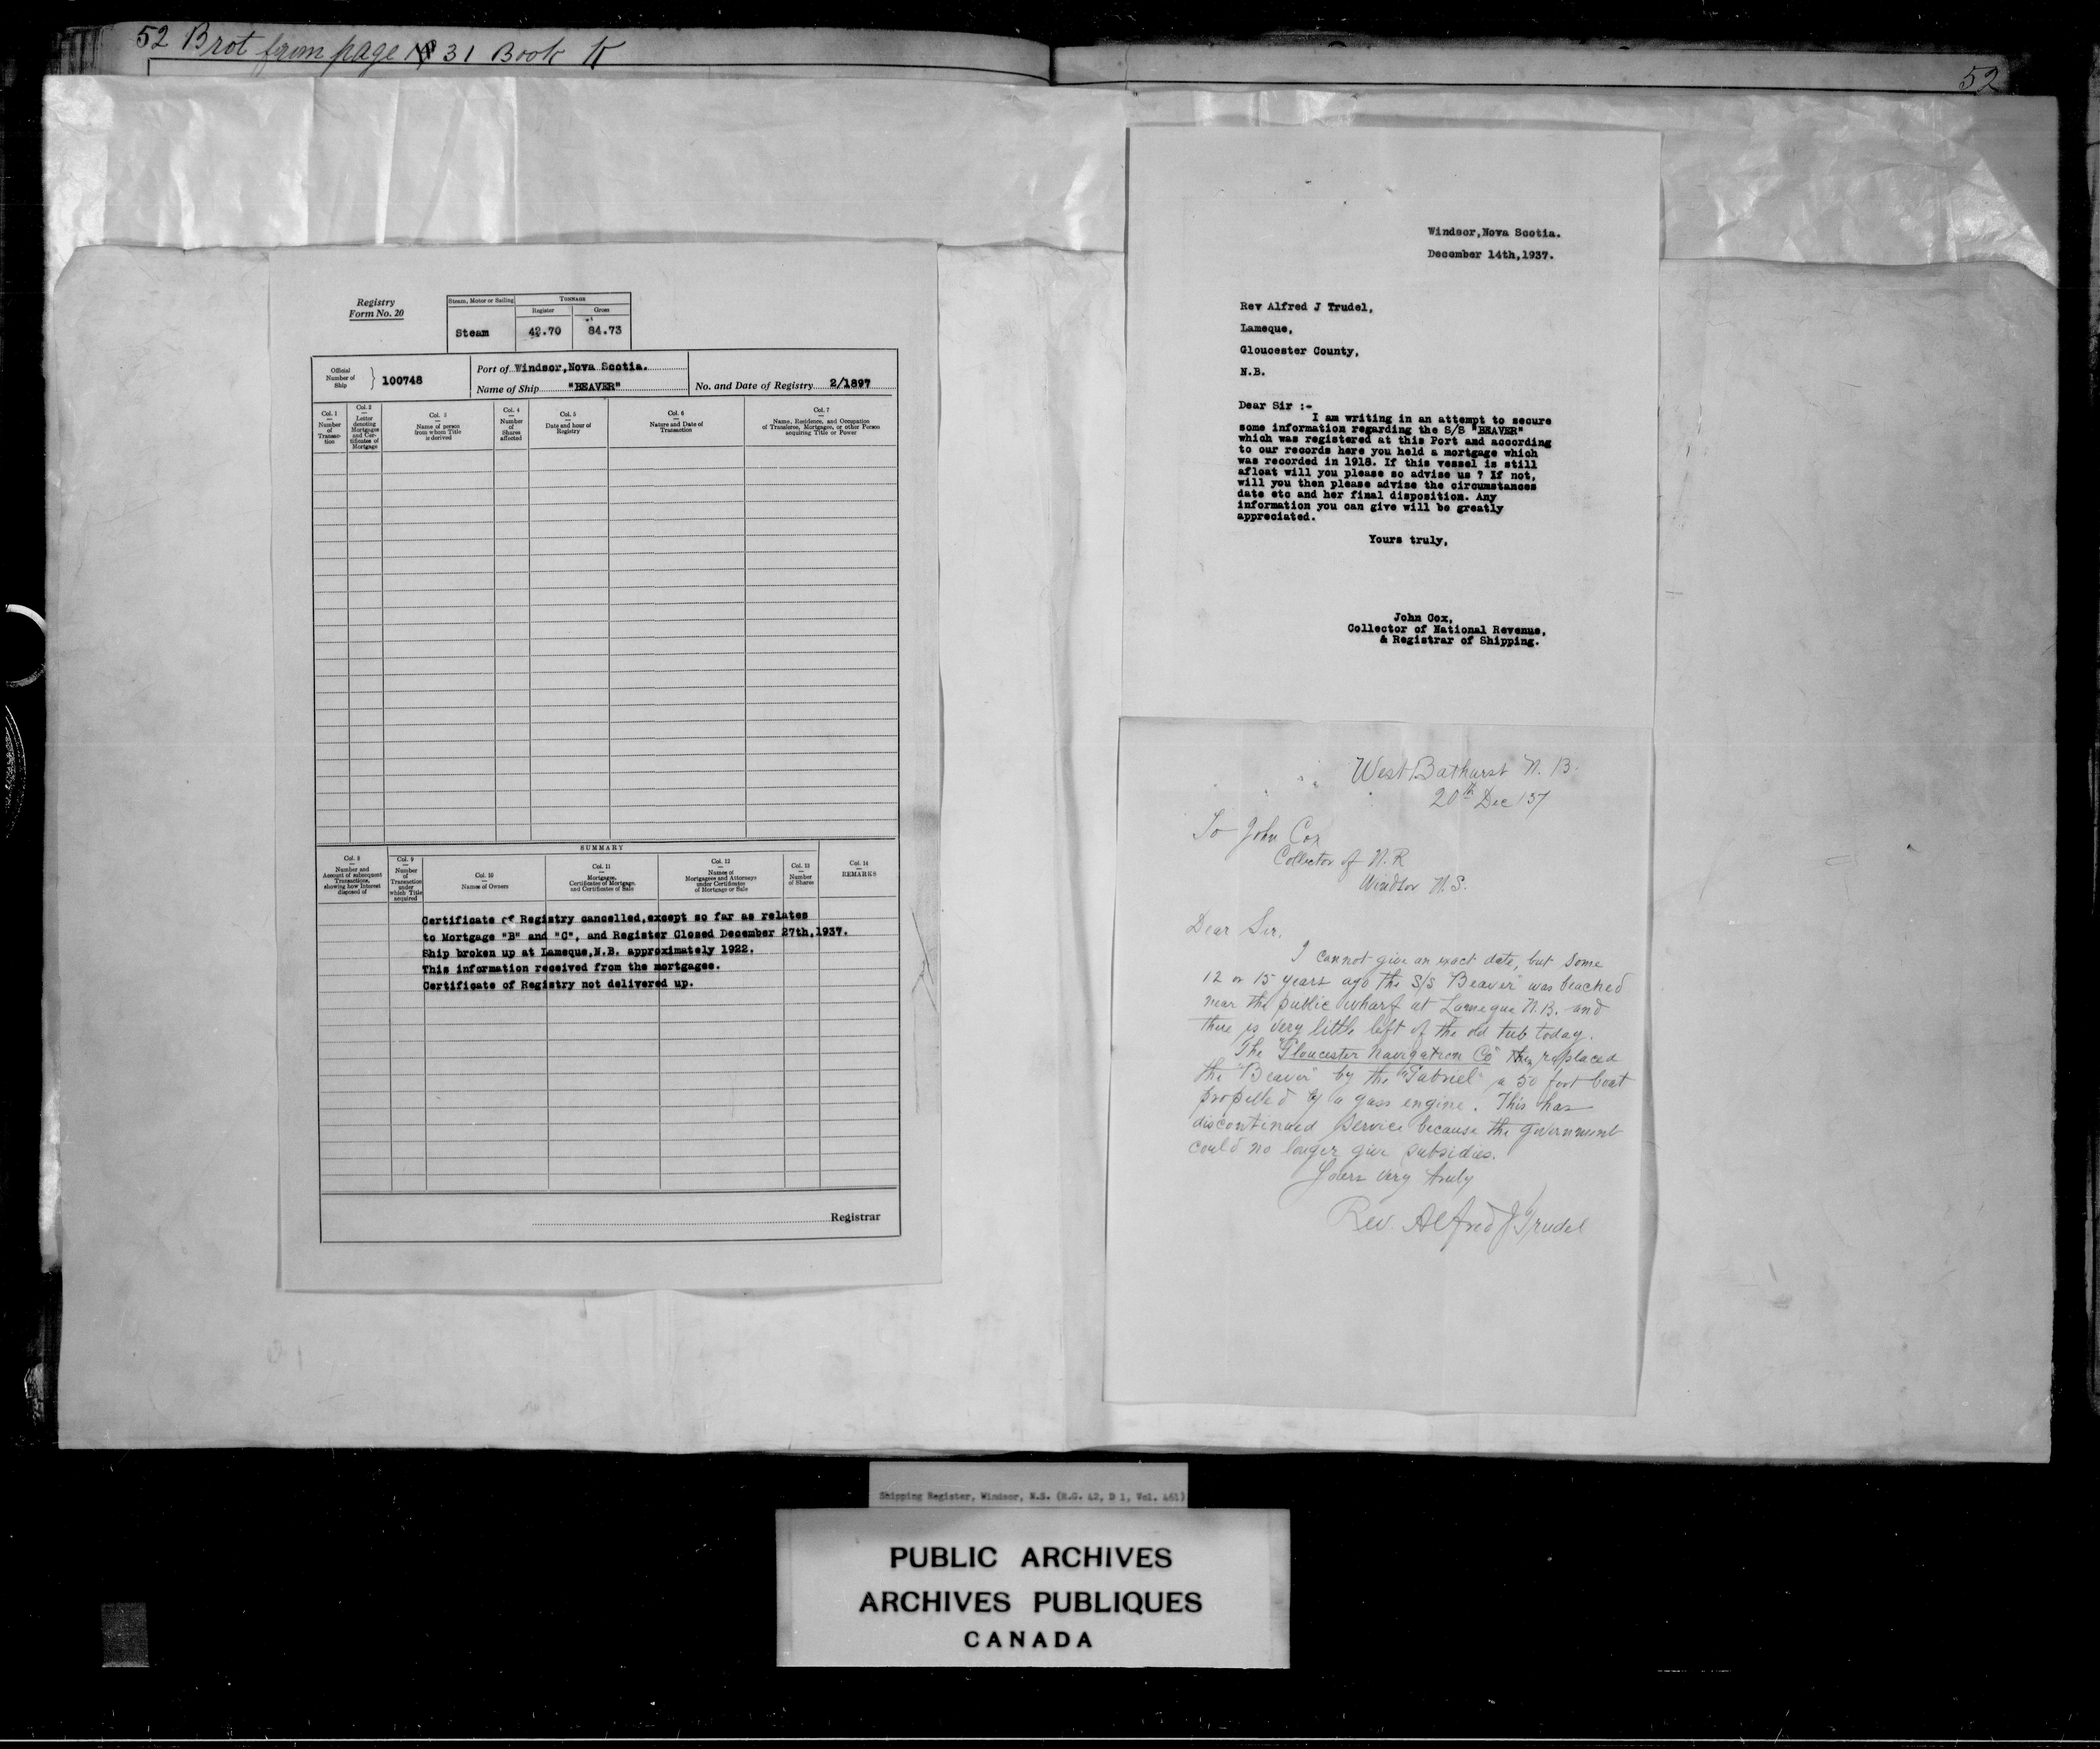 52 Brot from page 31 Book K
52
Registry
Form No. 20
Steam, Motor or Sailing
TONNAGE
Register
Gross
Steam
42.70
84.73
Official
Number of
Ship
} 100748
Port of Windsor,Nova Scotia.
Name of Ship "BEAVER"
No. and Date of Registry 2/1897
Col. 1
Number
of
Transac-
tion
Col. 2
Letter
denoting
Mortgages
and Cer-
tificates of
Mortgage
Col. 3
Name of person
from whom Title
is derived
Col. 4
Number
of
Shares
affected
Col. 5
Date and hour of
Registry
Col. 6
Nature and Date of
Transaction
Col. 7
Name, Residence, and Occupation
of Transferee, Mortgagee, or other Person
acquiring Title or Power
SUMMARY
Col. 8
Number and
Account of subsequent
Transactions,
showing how Interest
disposed of
Col. 9
Number
of
Transaction
under
which Title
acquired
Col. 10
Names of Owners
Col. 11
Mortgages,
Certificates of Mortgage,
and Certificates of Sale
Col. 12
Names of
Mortgagees and Attorneys
under Certificates
of Mortgage or Sale
Col. 13
Number
of Shares
Col. 14
REMARKS
Certificate of Registry cancelled,except so far as relates
to Mortgage "B" and "C", and Register Closed December 27th,1937.
Ship broken up at Lameque,N.B. approximately 1922.
This information received from the mortgagee.
Certificate of Registry not delivered up.
Registrar
Windsor,Nova Scotia.
December 14th,1937.
Rev Alfred J Trudel,
Lameque,
Gloucester County,
N.B.
Dear Sir :-
I am writing in an attempt to secure
some information regarding the S/S "BEAVER"
which was registered at this Port and according
to our records here you held a mortgage which
was recorded in 1918. If this vessel is still
afloat will you please so advise us ? If not,
will you then please advise the circumstances
date etc and her final disposition. Any
information you can give will be greatly
appreciated.
Yours truly,
John Cox,
Collector of National Revenue,
& Registrar of Shipping.
West Bathurst N. B.
20th Dec /37
To John Cox
Collector of N. R
Windsor N. S.
Dear Sir,
I cannot give an exact date, but some
12 or 15 years ago the S/S "Beaver" was beached
near the public wharf at Lameque N.B. and
there is very little left of the old tub today.
The "Gloucester Navigation Co" then replaced
the "Beaver" by the "Gabriel" a 50 foot boat
propelled by a gass engine. This has
discontinued service because the government
could no longer give subsidies.
Yours very truly
Rev. Alfred J Trudel
Shipping Register, Windsor, N.S. (R.G. 42, D 1, Vol. 461)
PUBLIC ARCHIVES
ARCHIVES PUBLIQUES
CANADA